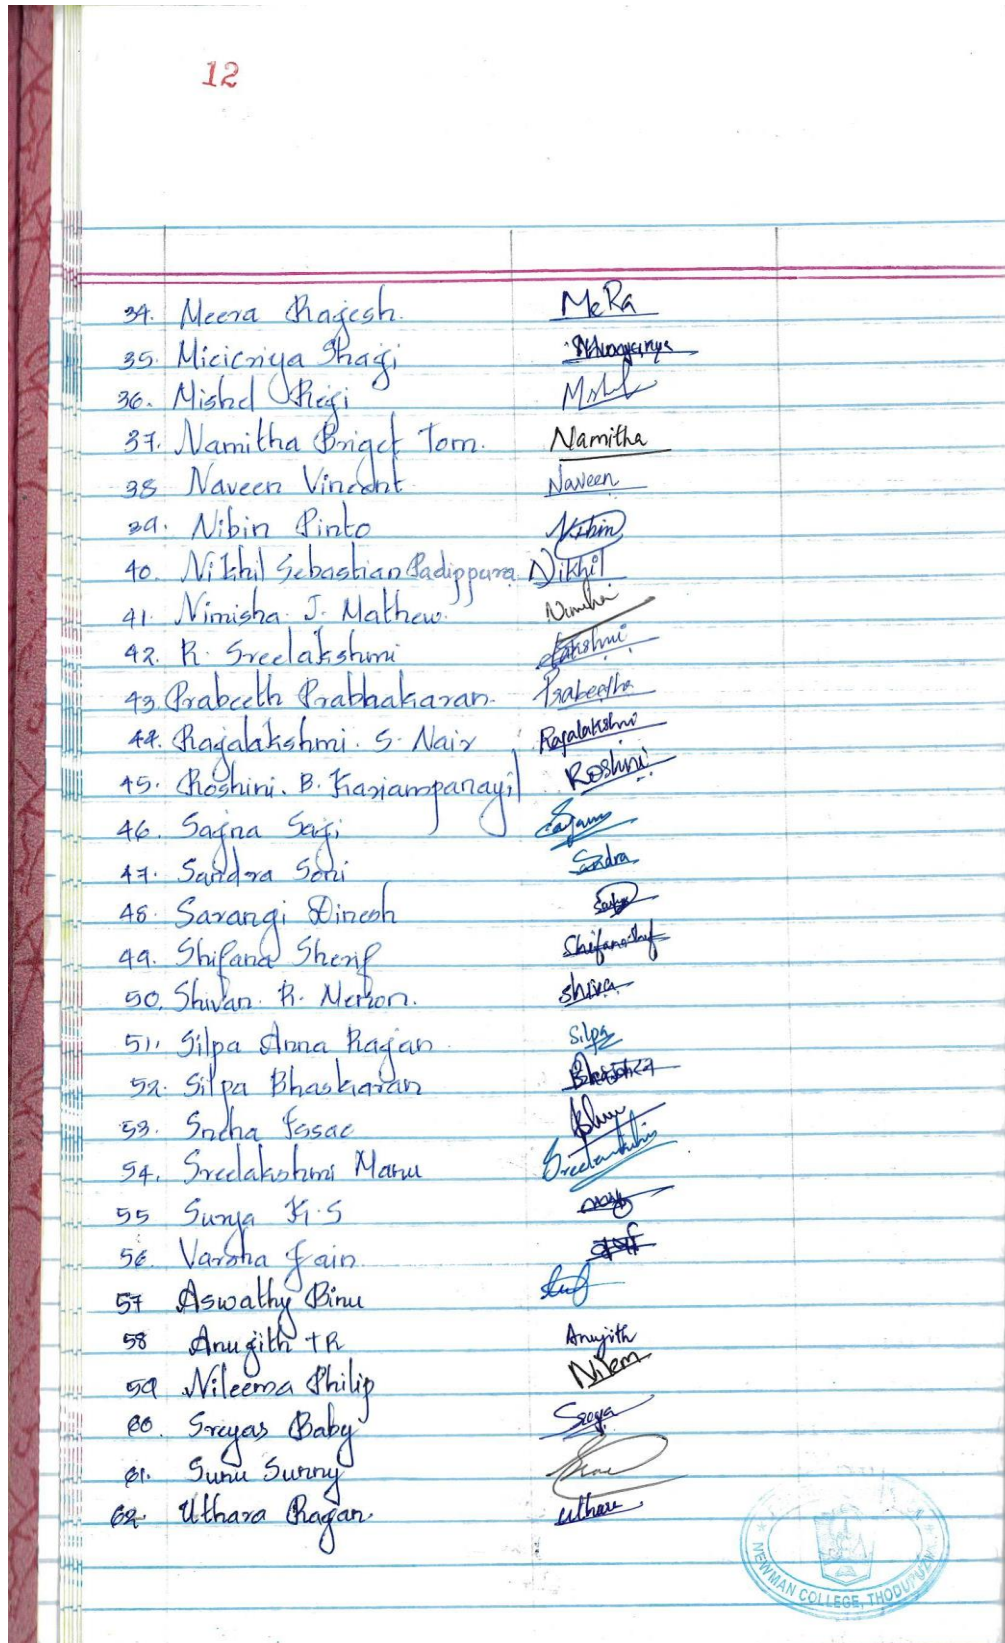 12
34. Meera Rajesh. MeRa
35. Shaji
36. Mishel Regi
37. Namitha Briget Tom. Namitha
38 Naveen Vincent Naveen
39. Nibin Pinto Nibin
40. Nikhil Sebastian Padippura Nikhil
41. Nimisha J. Mathew.
42. R. Sreelakshmi Lakshmi
43. Prabeeth Prabhakaran. Prabeetha
44. Rajalakshmi. S. Nair Rajalakshmi
45. Roshini. B. Kariampanayil Roshini
46. Sajna Saji
47. Sandra Soni Sandra
48. Sarangi Dinesh
49. Shifana Sherif
50. Shivan. R. Menon. Shiva
51. Silpa Anna Rajan Silpa
52. Silpa Bhaskaran
53. Sneha Issac
54. Sreelakshmi Manu
55 Surya K.S
56. Varsha Jain
57 Aswathy Binu
58 Anujith TR Anujith
59 Nileema Philip Nilem
60. Sreyas Baby
61. Sunu Sunny
62. Uthara Rajan.
NEWMAN COLLEGE, THODUPUZHA